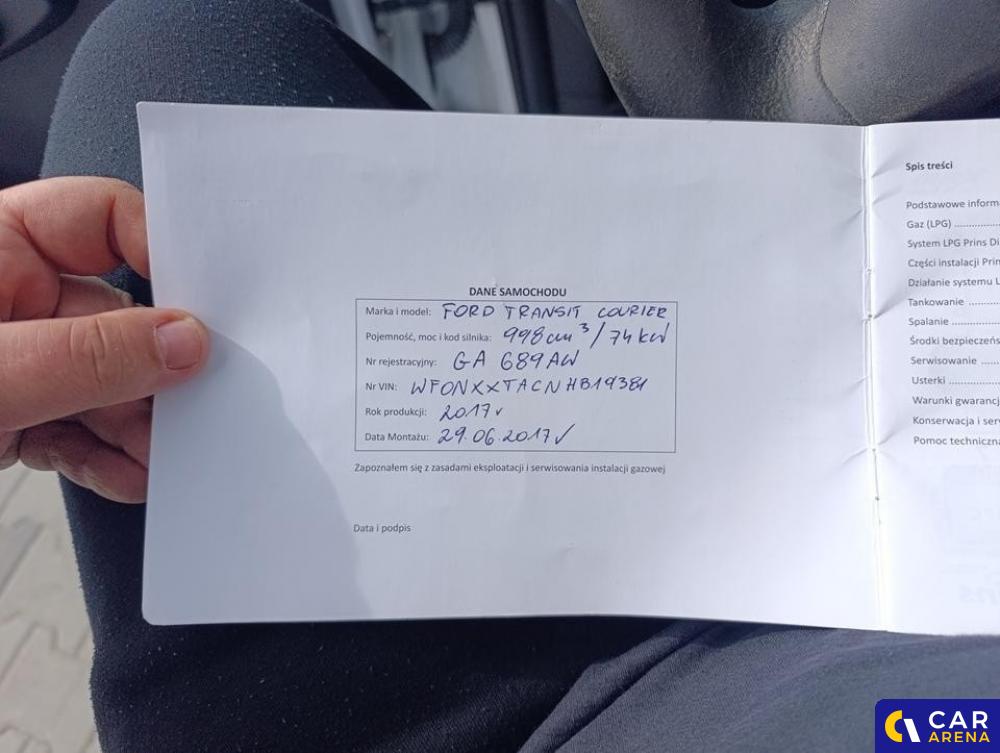 DANE SAMOCHODU
Marka i model: FORD TRANSIT COURIER
Pojemność, moc i kod silnika: 998 cm³/74 kW
Nr rejestracyjny: GA 689AW
Nr VIN: WFONXXTACNHB19381
Rok produkcji: 2017r
Data Montażu: 29.06.2017r
Zapoznałem się z zasadami eksploatacji i serwisowania instalacji gazowej
Data i podpis
Spis treści
Podstawowe inform
Gaz (LPG) ..............
System LPG Prins Di
Części instalacji Prin
Działanie systemu L
Tankowanie .........
Spalanie ..............
Środki bezpieczeńs
Serwisowanie .....
Usterki ................
Warunki gwarancj
Konserwacja i ser
Pomoc techniczna
CAR
ARENA